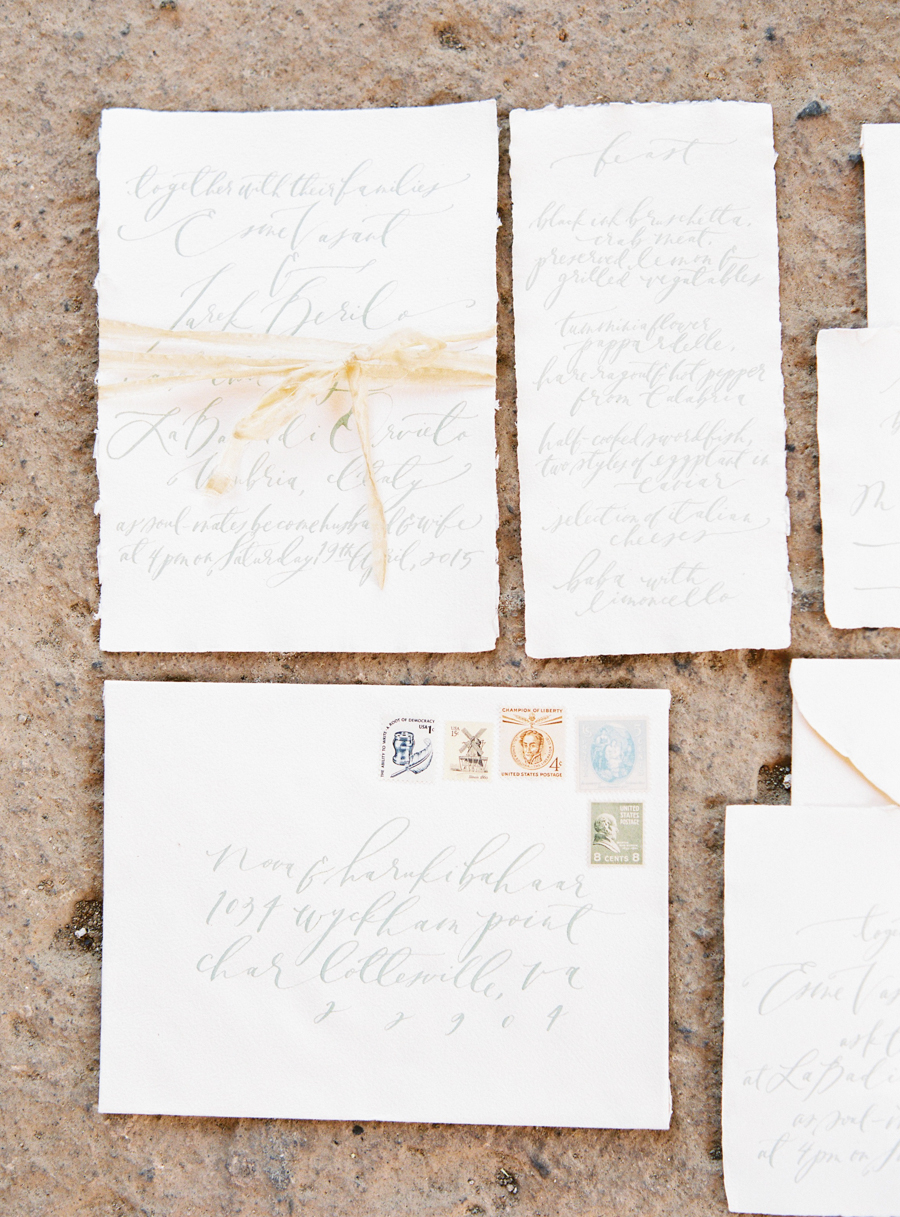 together with their families
Esme Vasant
&
Jarek Berilo
La Badia di Orvieto
Umbria, Italy
as soul-mates become husband & wife
at 4pm on, Saturday, 19th April, 2015
feast
black ink bruschetta,
crab meat,
preserved lemon &
grilled vegatables
tumminia flower
pappardelle,
hare ragout & hot pepper
from Calabria
half-cooked swordfish,
two styles of eggplant in
caviar
selection of italian
cheeses
baba with
limoncello
M
THE ABILITY TO WRITE · A ROOT OF DEMOCRACY
USA 1c
USA
15c
CHAMPION OF LIBERTY
4c
UNITED STATES POSTAGE
UNITED
STATES
POSTAGE
8 CENTS 8
Nova & haruki bahaar
1034 wyckham point
charlottesville, va
22904
toge
Esme Vas
ask
at La Badi
as soul-
at 4pm on